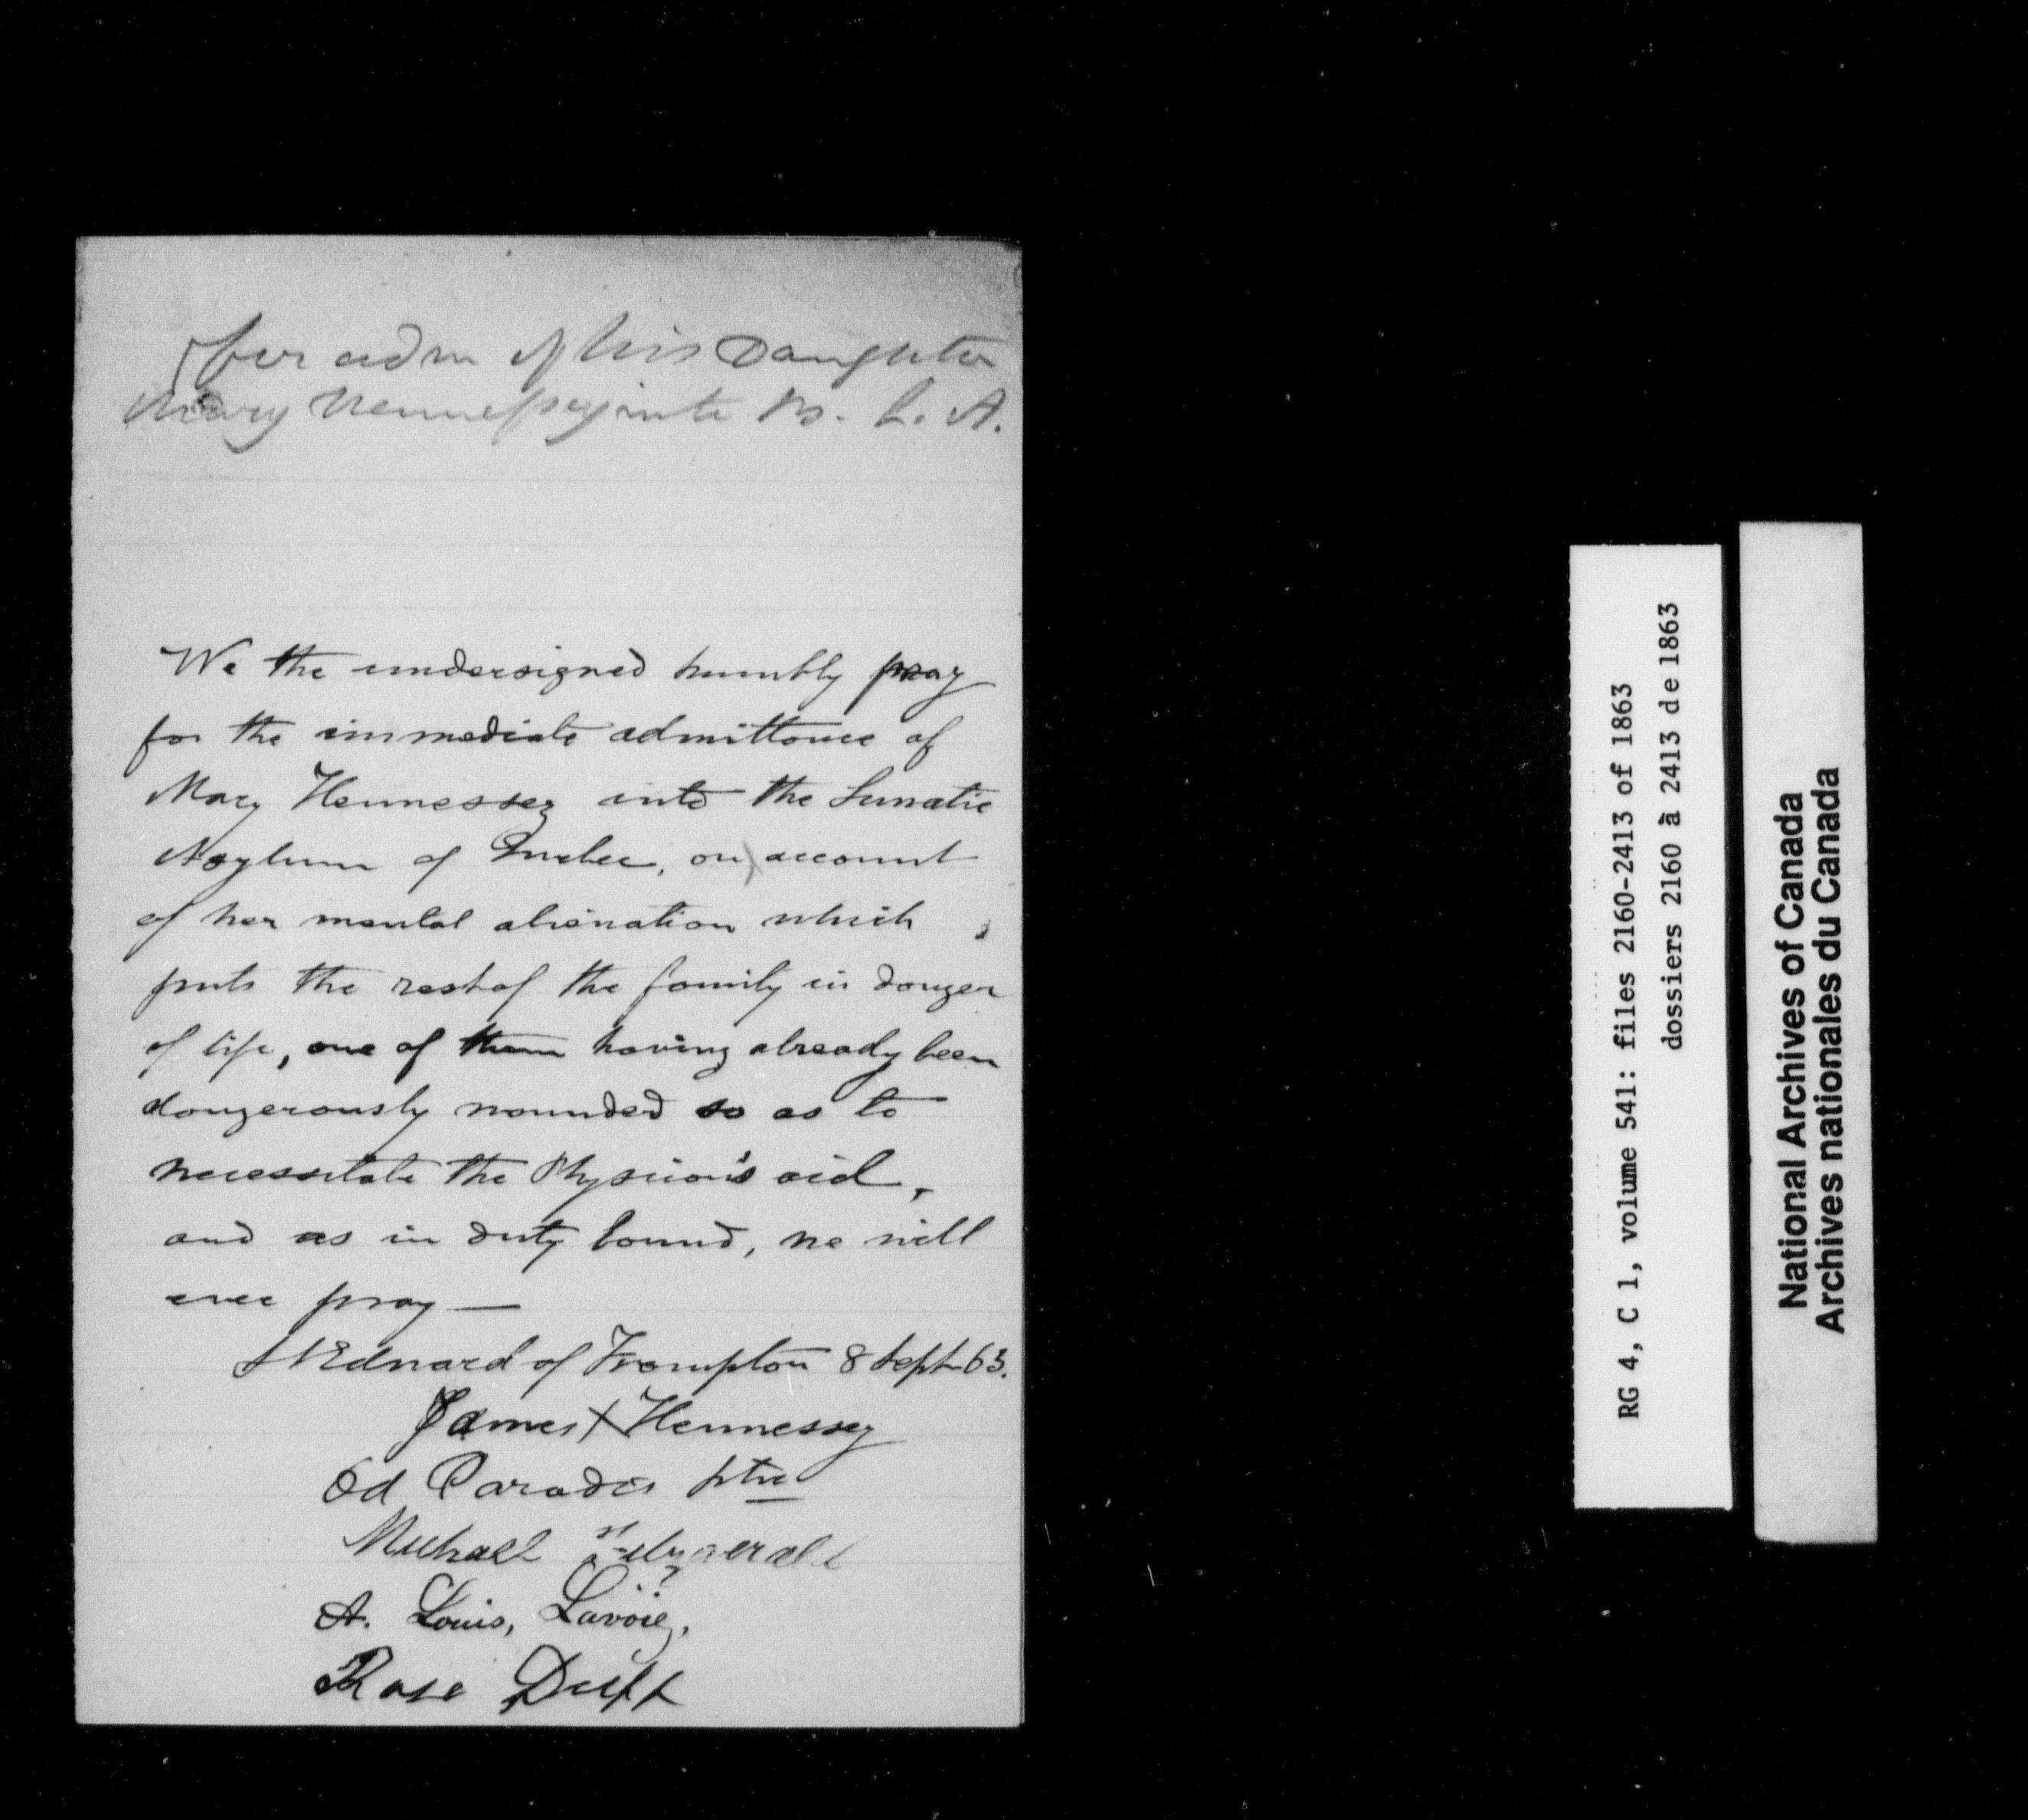 for adm of his Daughter
Mary Hennessey into B. L. A.
We the undersigned humbly pray
for the immediate admittance of
Mary Hennessey into the Lunatic
Asylum of Quebec, on account
of her mental alienation which
puts the rest of the family in danger
of life, one of them having already been
dangerously wounded so as to
necessitate the Physician's aid,
and as in duty bound, we will
ever pray —
St Edward of Frampton 8 Sept 63.
James X Hennessey
Ed Paradis ptre
Michael
A. Louis, Lavoie,
Rose Duff
RG 4, C 1, volume 541: files 2160-2413 of 1863
dossiers 2160 à 2413 de 1863
National Archives of Canada
Archives nationales du Canada